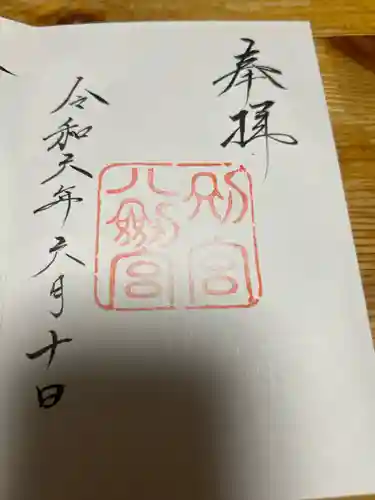 奉拝
別宮
八剱宮
令和元年六月十日